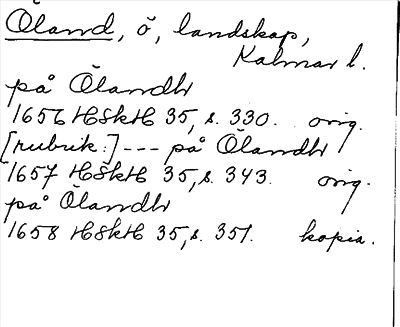 Öland, ö, landskap,
Kalmar l.
på Ölandh
1656 HSkH 35, s. 330. orig.
[rubrik:] --- på Ölandh
1657 HSkH 35, s. 343. orig.
på Ölandh
1658 HSkH 35, s. 351. kopia.